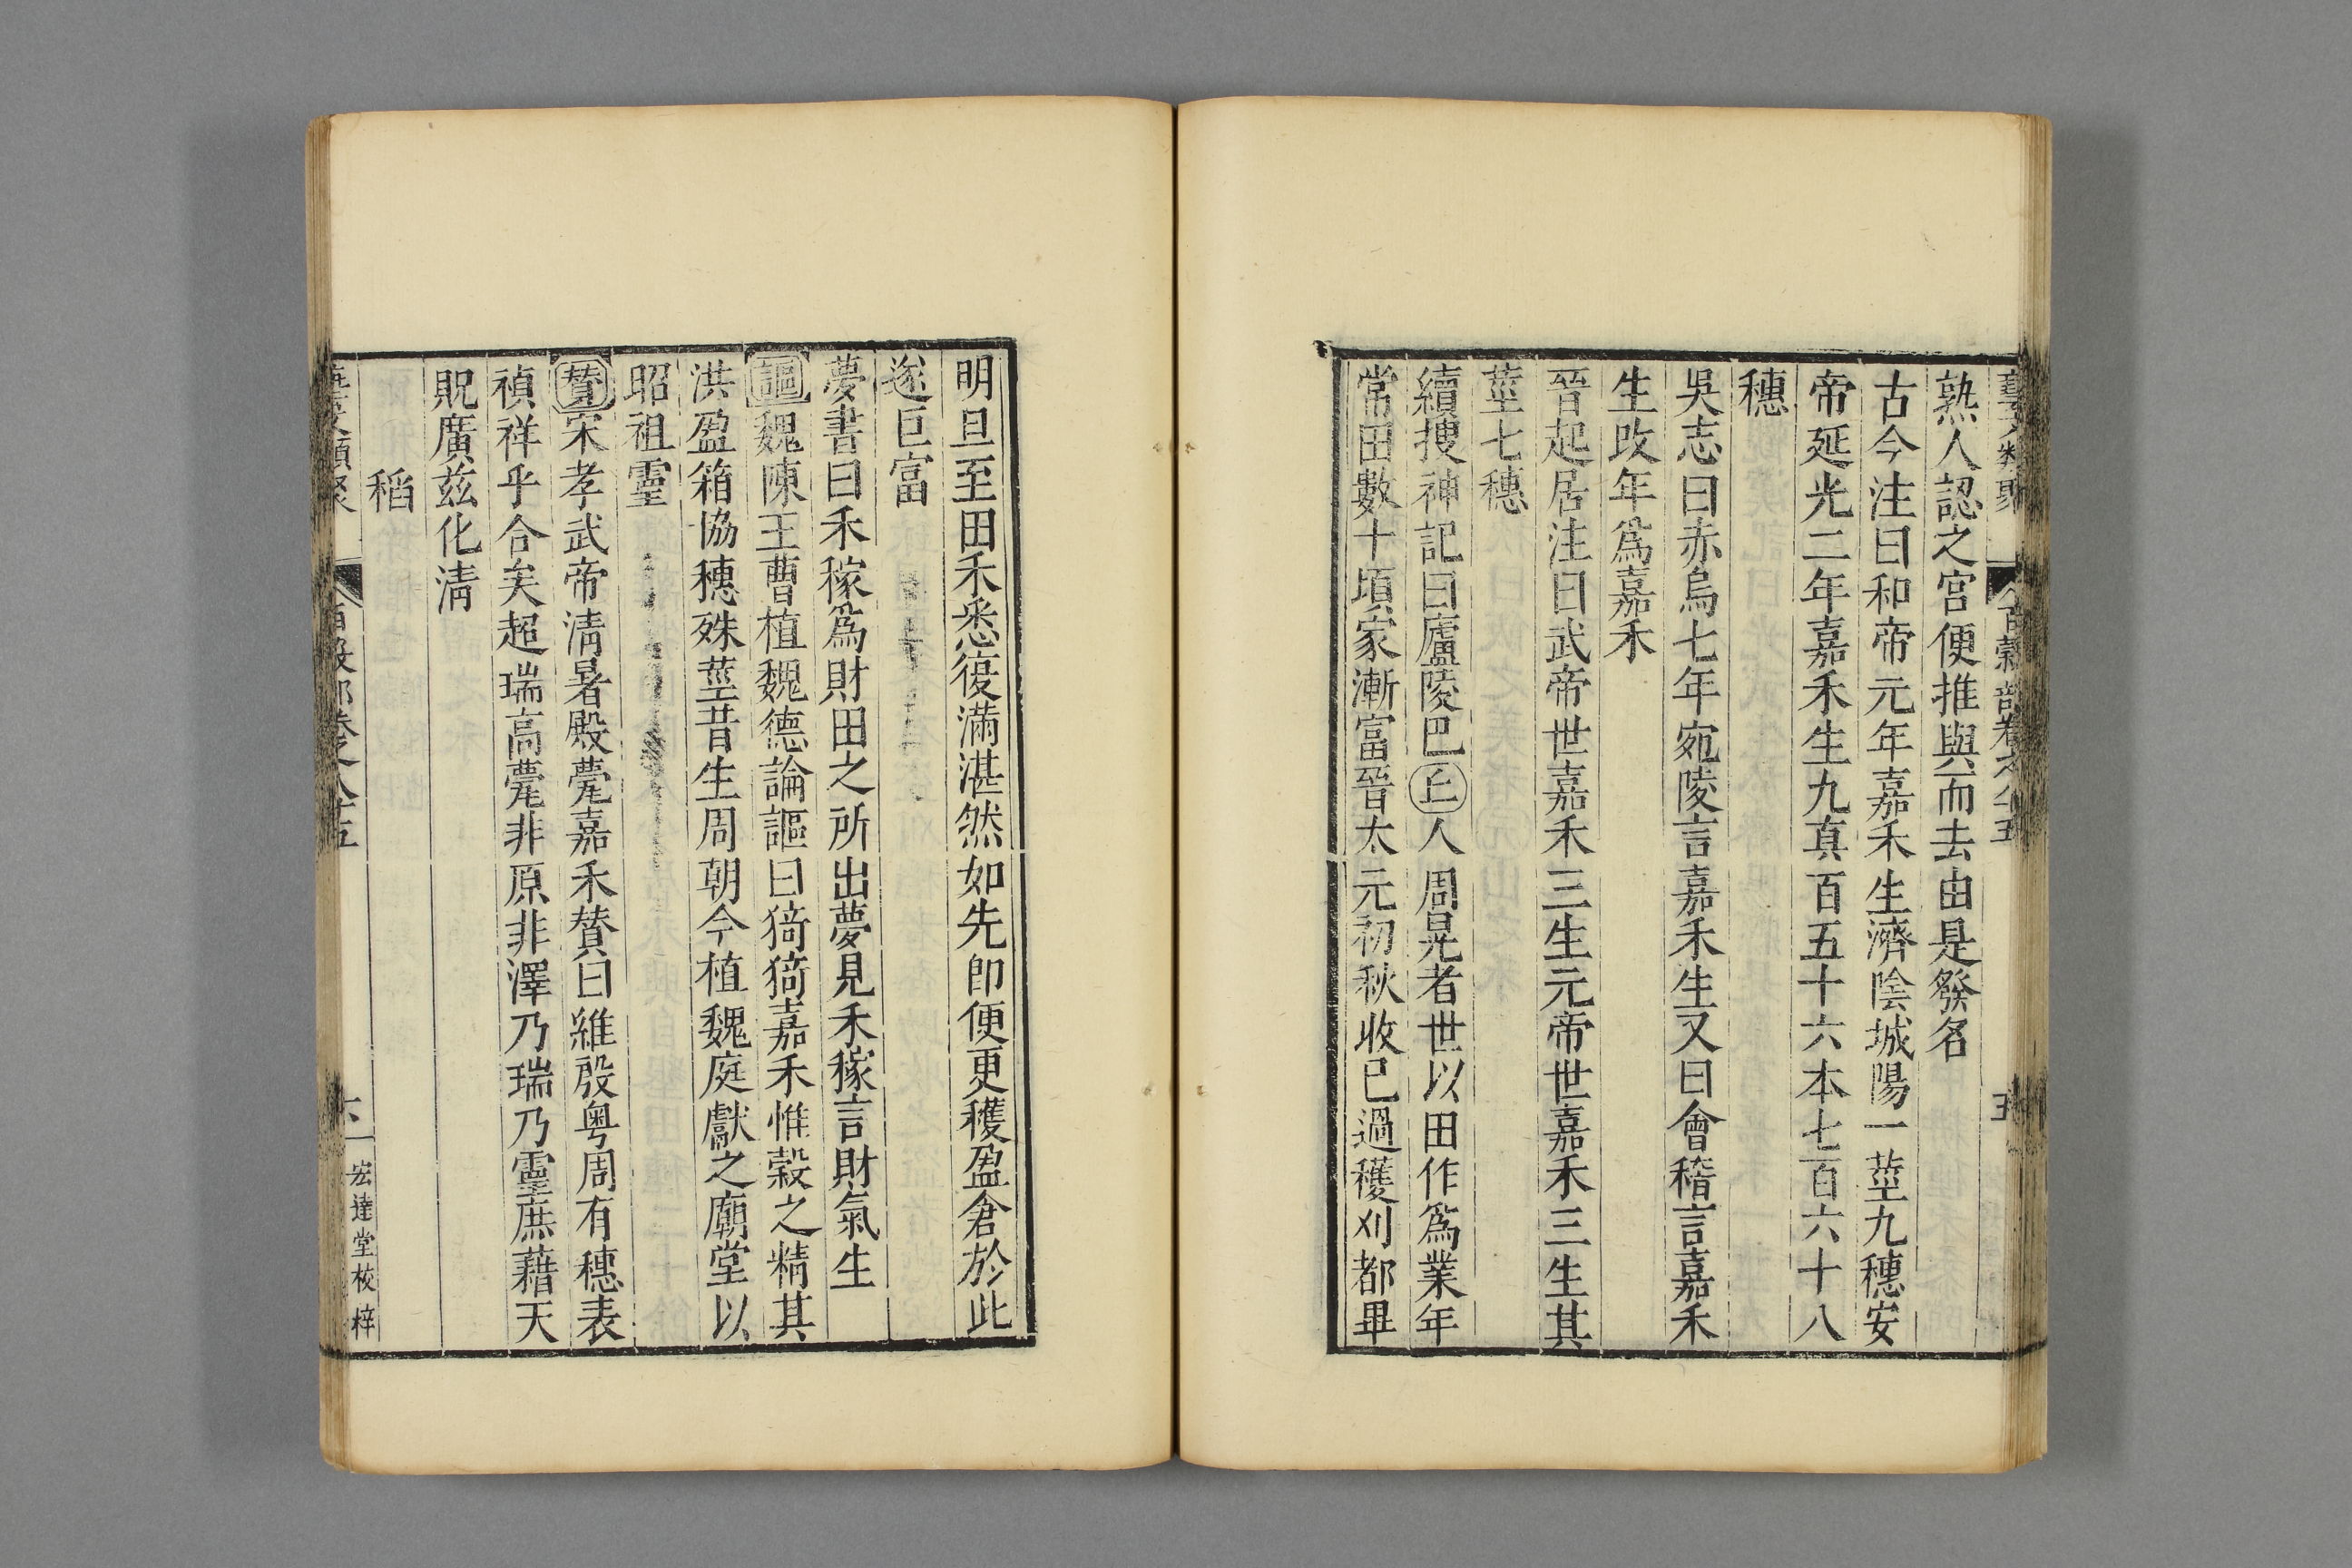 藝文類聚 百穀部卷之八十五 五
熟人認之宮便推與而去由是發名
古今注曰和帝元年嘉禾生濟陰城陽一莖九穗安
帝延光二年嘉禾生九真百五十六本七百六十八
穗
吳志曰赤烏七年宛陵言嘉禾生又曰會稽言嘉禾
生改年爲嘉禾
晉起居注曰武帝世嘉禾三生元帝世嘉禾三生其
莖七穗
續搜神記曰廬陵巴丘人周晃者世以田作爲業年
常田數十頃家漸富晉太元初秋收已過穫刈都畢
明旦至田禾悉復滿湛然如先即便更穫盈倉於此
遂巨富
夢書曰禾稼爲財田之所出夢見禾稼言財氣生
謳魏陳王曹植魏德論謳曰猗猗嘉禾惟穀之精其
洪盈箱協穗殊莖昔生周朝今植魏庭獻之廟堂以
昭祖靈
贊宋孝武帝清暑殿甍嘉禾贊曰維殷粤周有穗表
禎祥乎合矣超瑞高甍非原非澤乃瑞乃靈庶藉天
貺廣茲化清
稻
藝文類聚 百穀部卷之八十五 六 宏達堂校梓